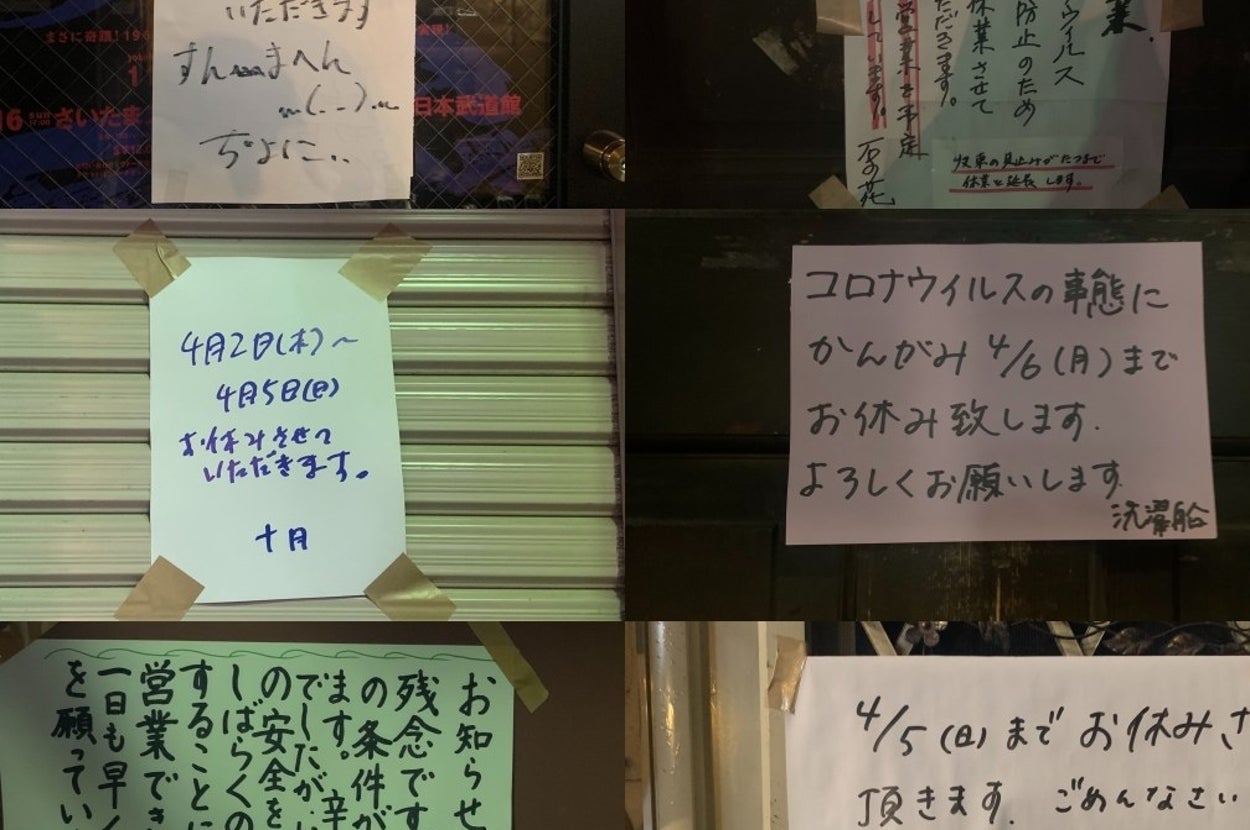 いただきます
すんませへん
m(_ _)m
まさに奇蹟!196
16 SUN
さいたま
日本武道館
業.
ウイルス
防止のため
休業させて
ただきます。
営業を予定
しています。
石の花
収束の見込みがたつまで
休業を延長します。
4月2日(木)〜
4月5日(日)
お休みさせて
いただきます。
十月
コロナウイルスの事態に
かんがみ 4/6(月)まで
お休み致します.
よろしくお願いします
洗濯船
お知らせ
残念です
の条件が
ます。辛
でしたが
の安全を
しばらくの
することに
営業でき
一日も早く
を願ってい
4/5(日)までお休みさ
頂きます. ごめんなさい